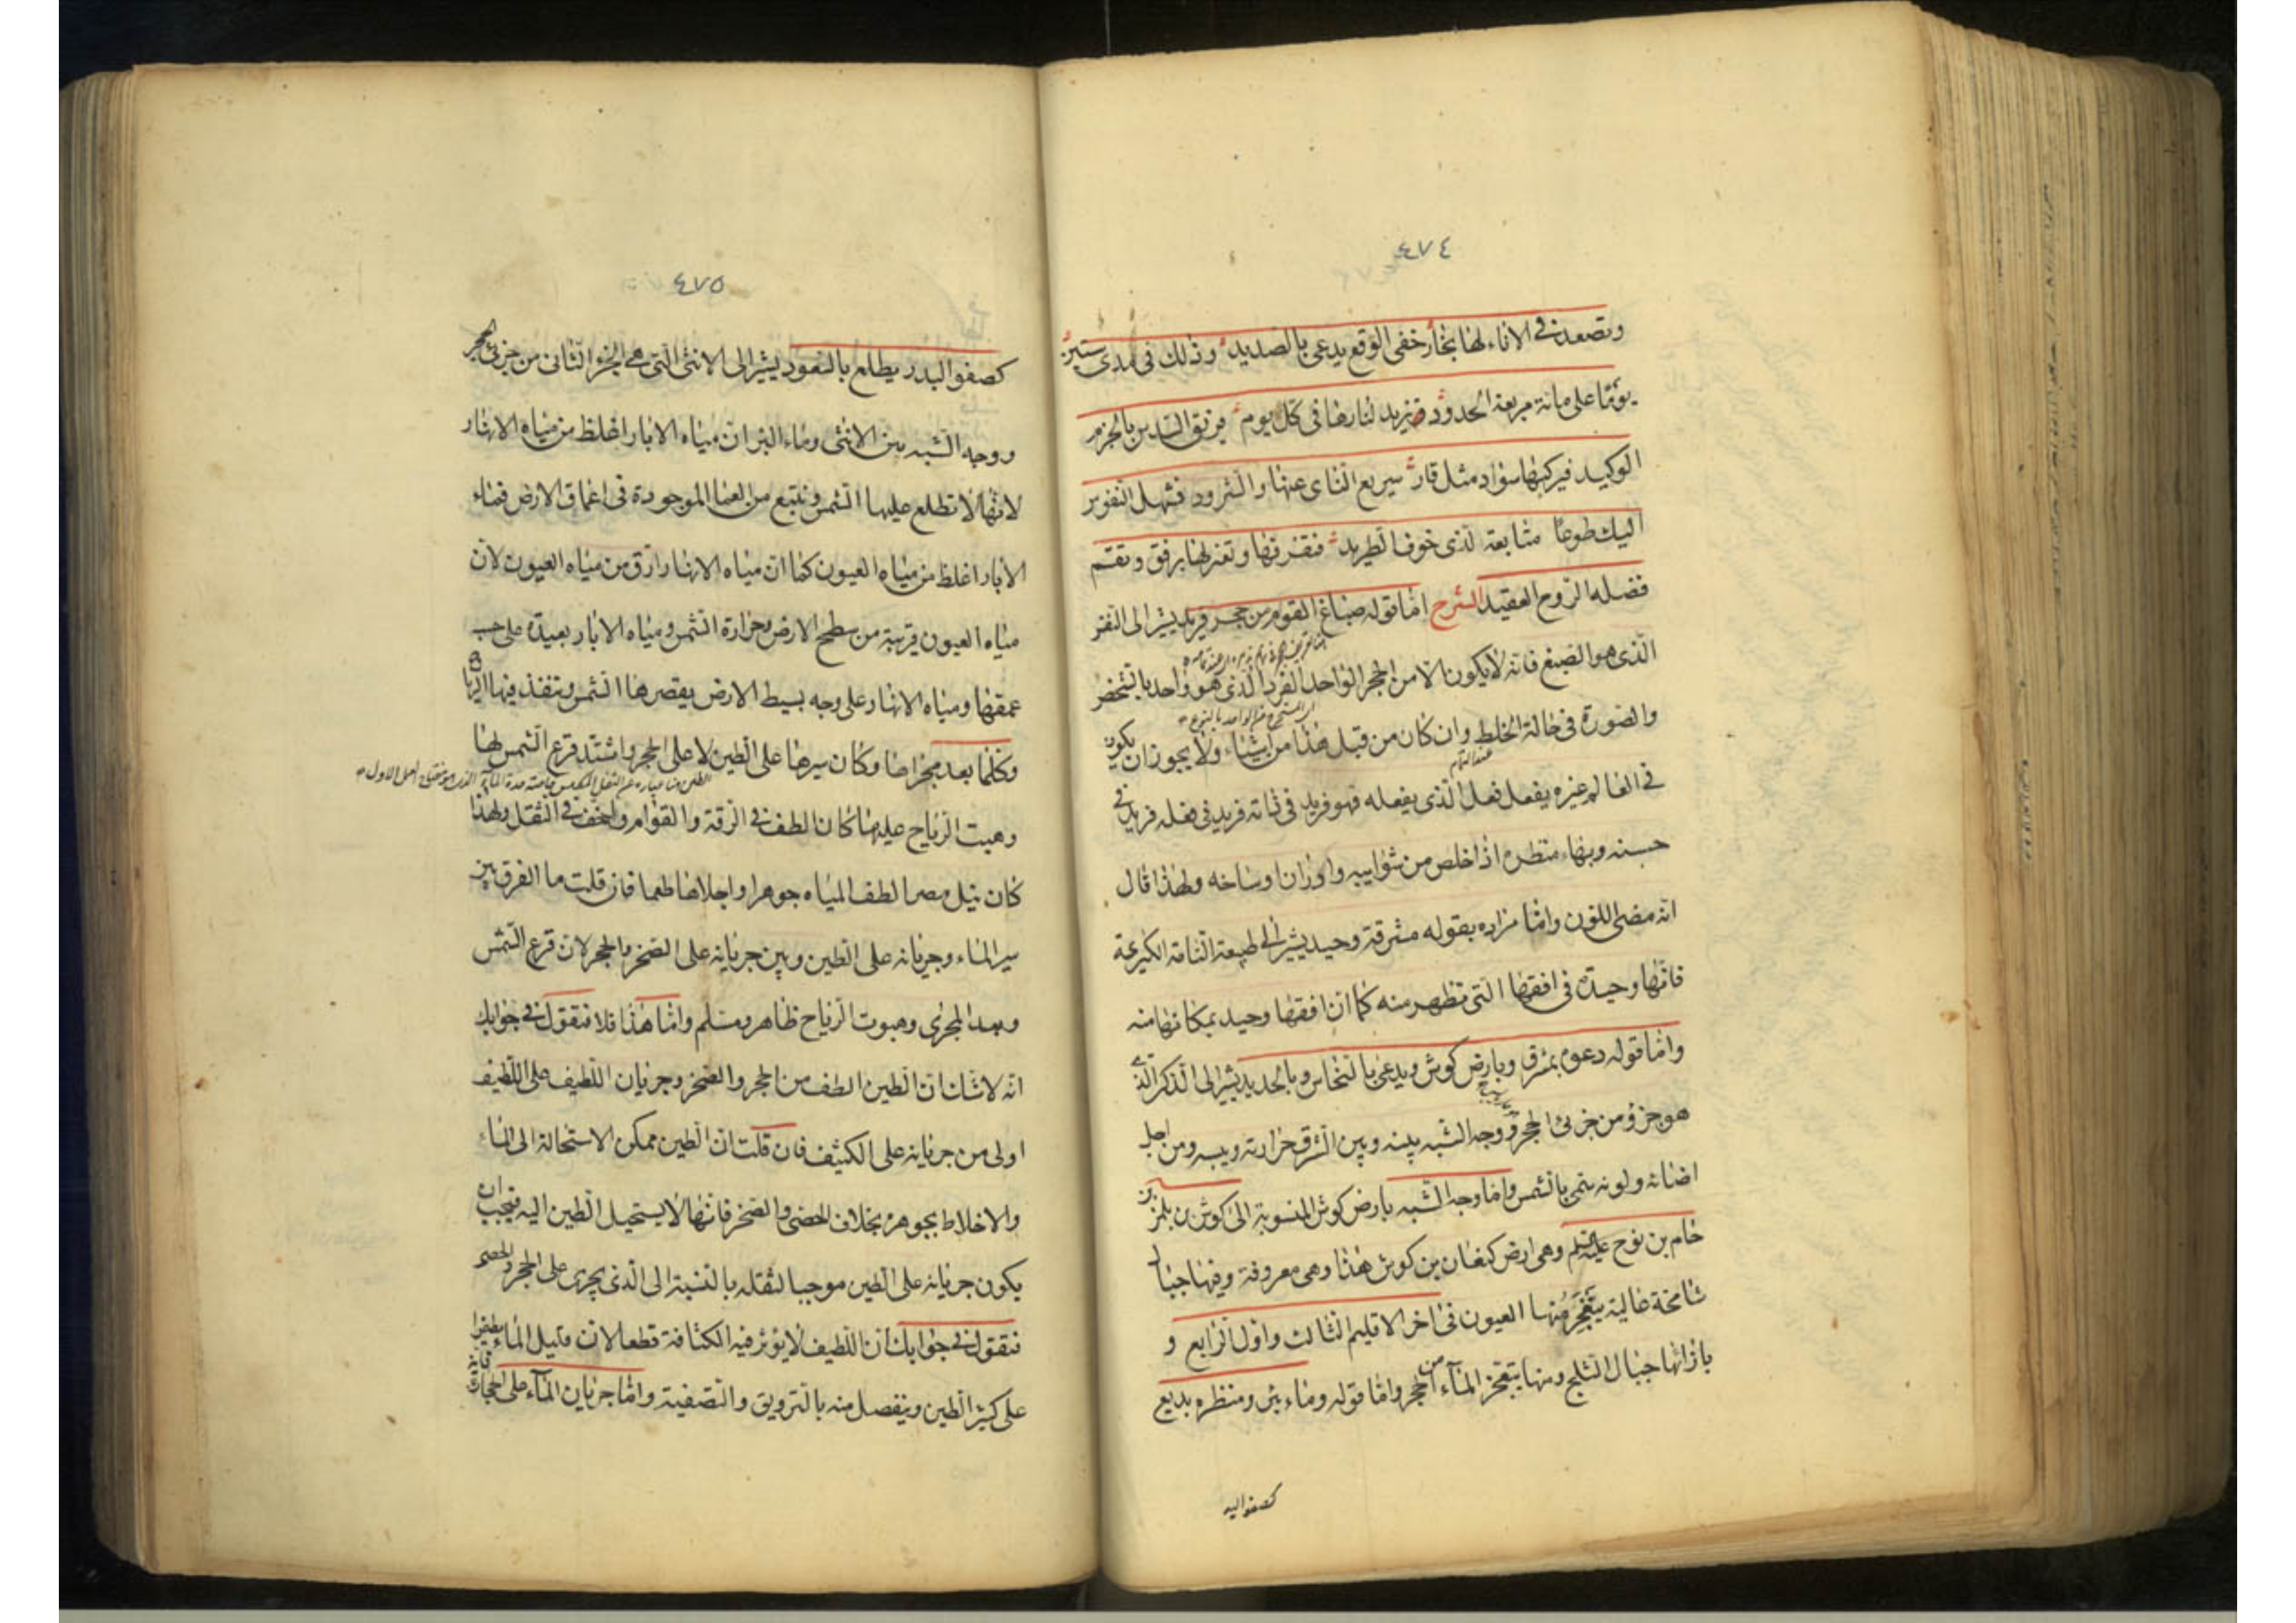 ٤٧٤
وتصعد في الاناء لها بخار خفي الوقع يدعى بالصديد وذلك في مدى ستين
يوما على مائة مربعة الحدود تزيد لنارها في كل يوم بالجزء
الوكيد فيركبها سواد مثل قار سريع الناى عنها والشرود فتهل النفوس
اليك طوعا متابعة لذى خوف الطريد فتفرقها وتعزلها برفق وتقسم
فضله الروح العقيد الشرح اما قوله صباغ القوم من حجر فريد يشير الى النفس
الذى هو الصبغ فانه لا يكون الا من الحجر الواحد الفرد الذى هو واحد بالشخص
والصورة في حالة الخلط وان كان من قبل هذا من اشياء ولا يجوز ان يكون
في العالم غيره يفعل فعل الذى يفعله فهو فريد في ذاته فريد في فعله فريد في
حسنه وبهاء منظره اذا خلص من شوايبه واوزان اوساخه ولهذا قال
انه مضى اللون واما مراده بقوله مشرقة وحيد يشير الى طبيعة التامة الكريمة
فانها وحيدة في افقها التى تظهر منه كما ان افقها وحيد بمكانها منه
واما قوله دعوه بمشرق وبارض كوش ويدعى بالنحاس وبالحديد يشير الى الذكر الذى
هو جزؤ من جزئى الحجر ووجه الشبه بينه وبين الشرق حرارته ويبسه ومن اجل
اضائه ولونه سمى بالشمس واما وجه الشبه بارض كوش المنسوبة الى كوش بن
حام بن نوح عليه السلم وهى ارض كنعان بن كوش هذا وهى معروفة وفيها جبال
شامخة عالية يتفجر منها العيون في اخر الاقليم الثالث واول الرابع و
بازائها جبال الثلج ومنها يتفجر الماء من الحجر واما قوله وماء بئر ومنظره بديع
كصفو البد
٤٧٥
كصفو البدر يطلع بالسعود يشير الى الانثى التى هى الجزؤ الثانى من جزئى الحجر
ووجه الشبه بين الانثى وماء البئر ان مياه الابار اغلظ من مياه الانهار
لانها لا تطلع عليها الشمس وتنبع من الموجودة في اعماق الارض فماء
الابار اغلظ من مياه العيون كما ان مياه الانهار ارق من مياه العيون لان
مياه العيون قريبة من سطح الارض وحرارة الشمس ومياه الابار بعيدة على حسب
عمقها ومياه الانهار على وجه بسيط الارض يقصرها الشمس وتنفذ فيها الرياح
وكلما بعد مجراها وكان سيرها على الطين لا على الحجر واشتد قرع الشمس لها
وهبت الرياح عليها كان الطف في الرقة والقوام واخف في الثقل ولهذا
كان نيل مصر الطف المياه جوهرا واجلاها طعما فان قلت ما الفرق بين
سير الماء وجريانه على الطين وبين جريانه على الصخر والحجر لان قرع الشمس
وبعد المجرى وهبوت الرياح ظاهر ومسلم واما هذا فلا فنقول في جوابك
انه لا شك ان الطين الطف من الحجر والصخر وجريان اللطيف على اللطيف
اولى من جريانه على الكثيف فان قلت ان الطين ممكن الاستحالة الى الماء
والاختلاط بجوهره بخلاف الحصى والصخر فانها لا يستحيل الطين اليه فيجب ان
يكون جريانه على الطين موجبا لثقله بالنسبة الى الذى يجرى على الحجر والحصى
فنقول في جوابك ان اللطيف لا يؤثر فيه الكثافة قطعا لان قليل الماء يطفوا
على كثير الطين وينفصل منه بالترويق والتصفية واما جريان الماء على الحجارة فانه